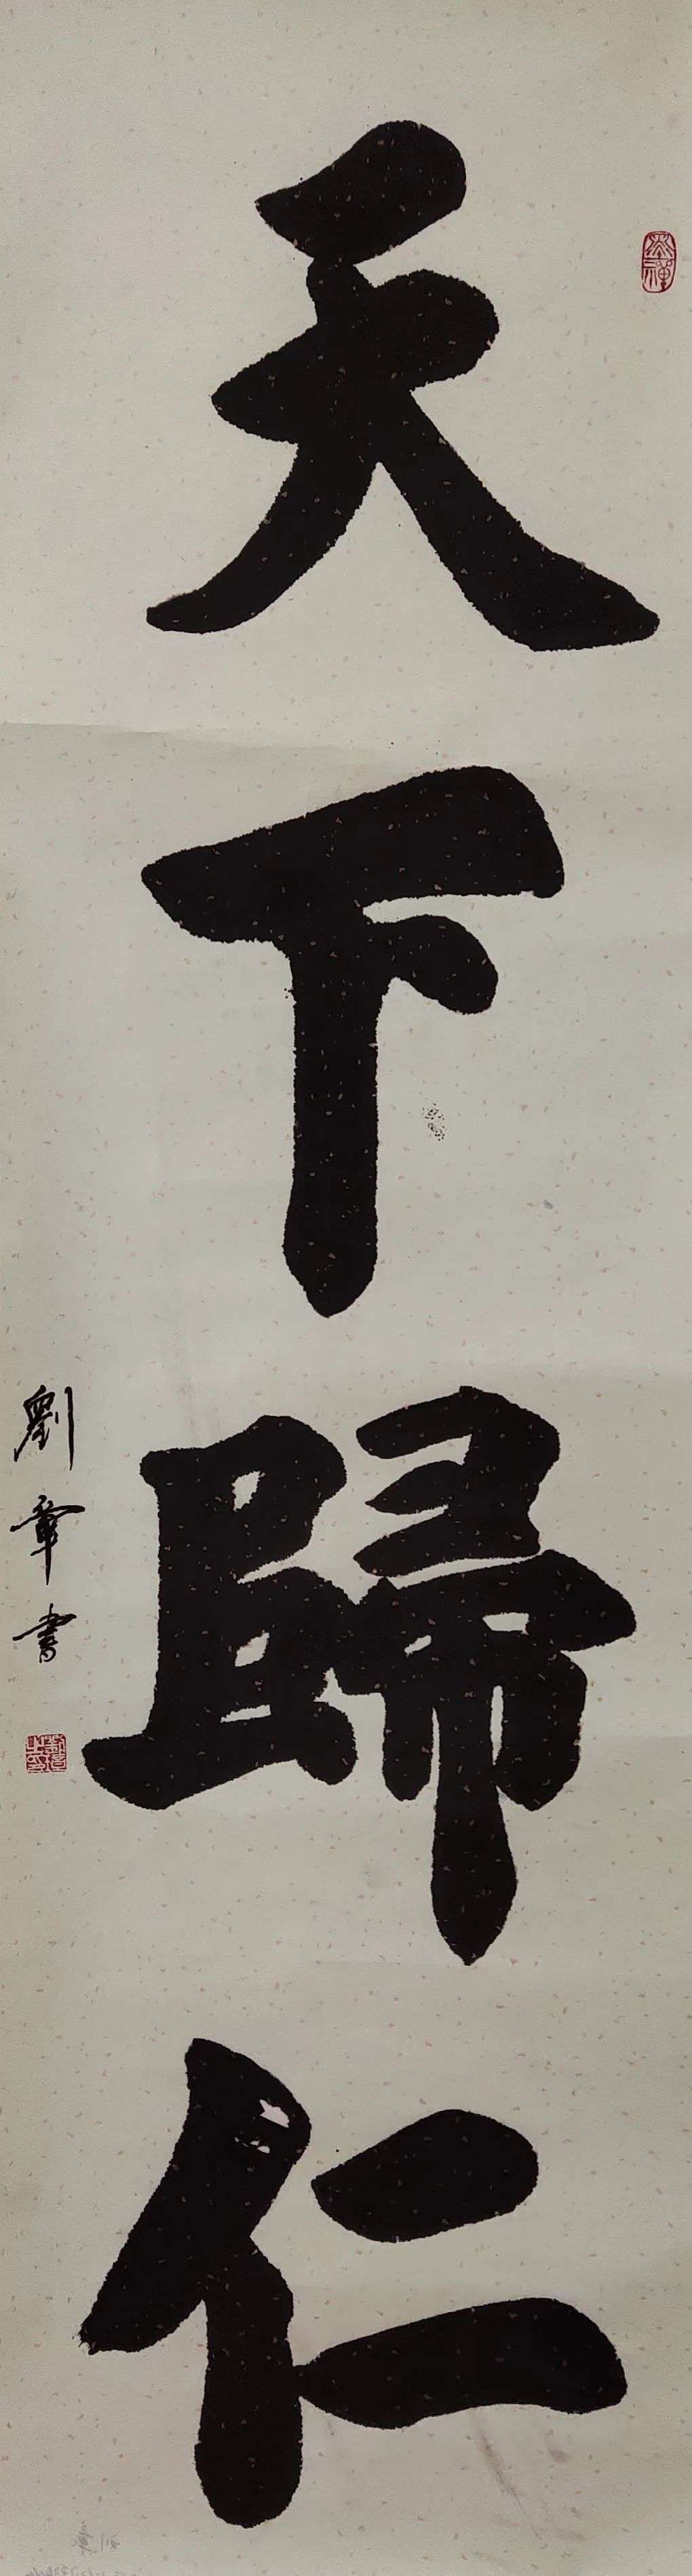 天下歸仁
劉章書